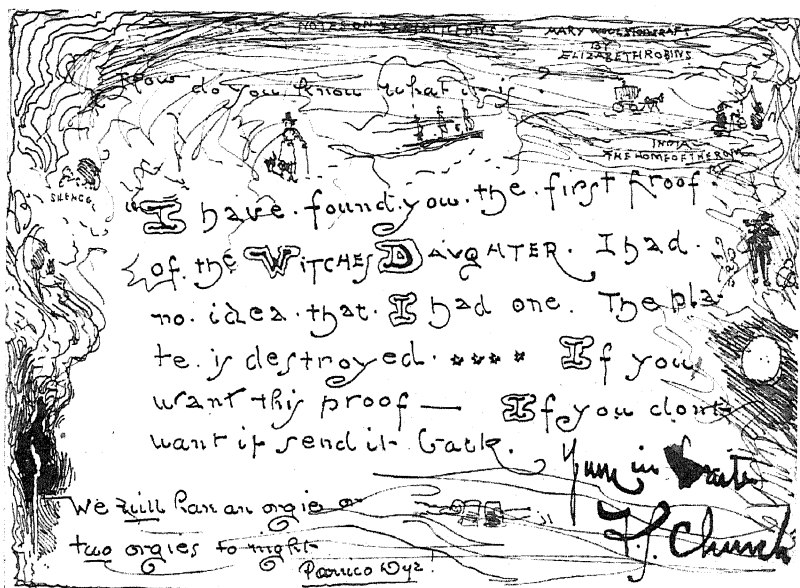 MARY WOOLSTONCRAFT
BY
ELIZABETH ROBINS
How do you know what it is ?
INDIA
THE HOME OF THE
SILENCE
"I have found you the first proof
of the WITCHES DAUGHTER. I had
no idea that I had one. The pla-
te is destroyed. **** If you
want this proof — If you dont
want it send it back.
in haste
F. S. Church
We will han an orgie or
two orgies to night